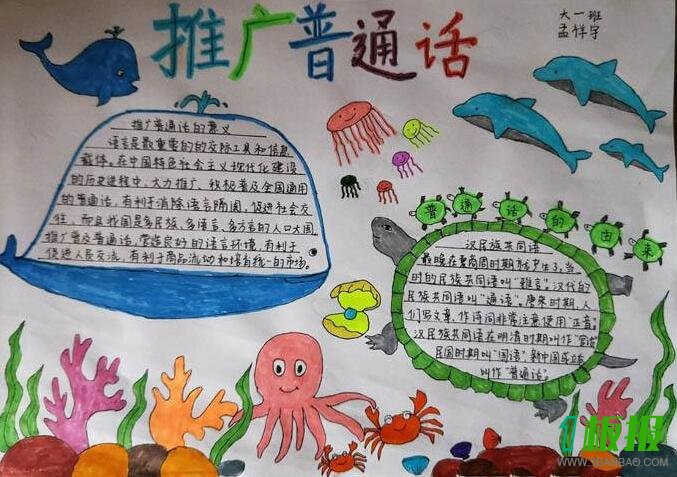 推广普通话
大一班
孟祥宇
推广普通话的意义
语言是最重要的的交际工具和信息
载体。在中国特色社会主义现代化建设
的历史进程中,大力推广、积极普及全国通用
的普通话,有利于消除语言隔阂,促进社会交
往,而且我国是多民族、多语言、多方言的人口大国
推广普及普通话,营造良好的语言环境,有利于
促进人民交流,有利于商品流动和培育统一的市场。
普通话的由来
汉民族共同语
最晚在夏商周时期就产生了,当
时的民族共同语叫"雅言"。汉代的
民族共同语叫"通语"。唐宋时期,人
们写文章、作诗词非常注意使用"正音"。
汉民族共同语在明清时期叫作"官话"
民国时期叫"国语"新中国成立后
叫作"普通话"
1板报
WWW.1BANBAO.COM